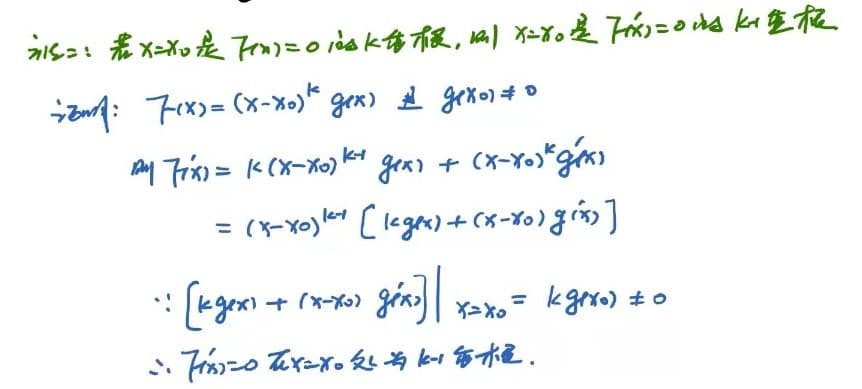 注二：若 x=x₀ 是 F(x)=0 的 k 重根，则 x=x₀ 是 F'(x)=0 的 k-1 重根
证明：F(x)=(x-x₀)ᵏ g(x) 且 g(x₀)≠0
则 F'(x) = k(x-x₀)ᵏ⁻¹ g(x) + (x-x₀)ᵏ g'(x)
= (x-x₀)ᵏ⁻¹ [kg(x)+(x-x₀)g'(x)]
∵ [kg(x)+(x-x₀) g'(x)]|x=x₀ = kg(x₀) ≠ 0
∴ F'(x)=0 在x=x₀ 处为 k-1 重根.